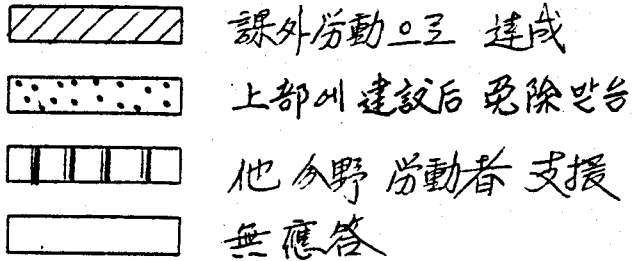 課外労動으로 達成
上部에 建議后 免除받음
他 分野 労動者 支援
無應答